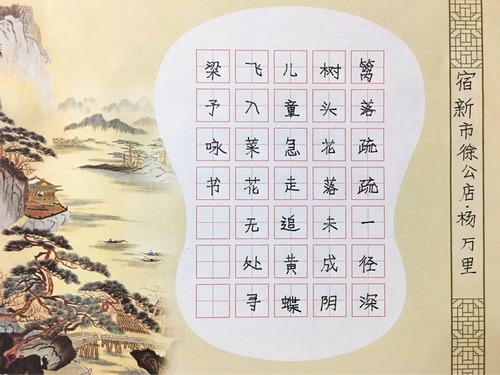 宿新市徐公店·杨万里
篱落疏疏一径深
树头花落未成阴
儿童急走追黄蝶
飞入菜花无处寻
梁予咏书